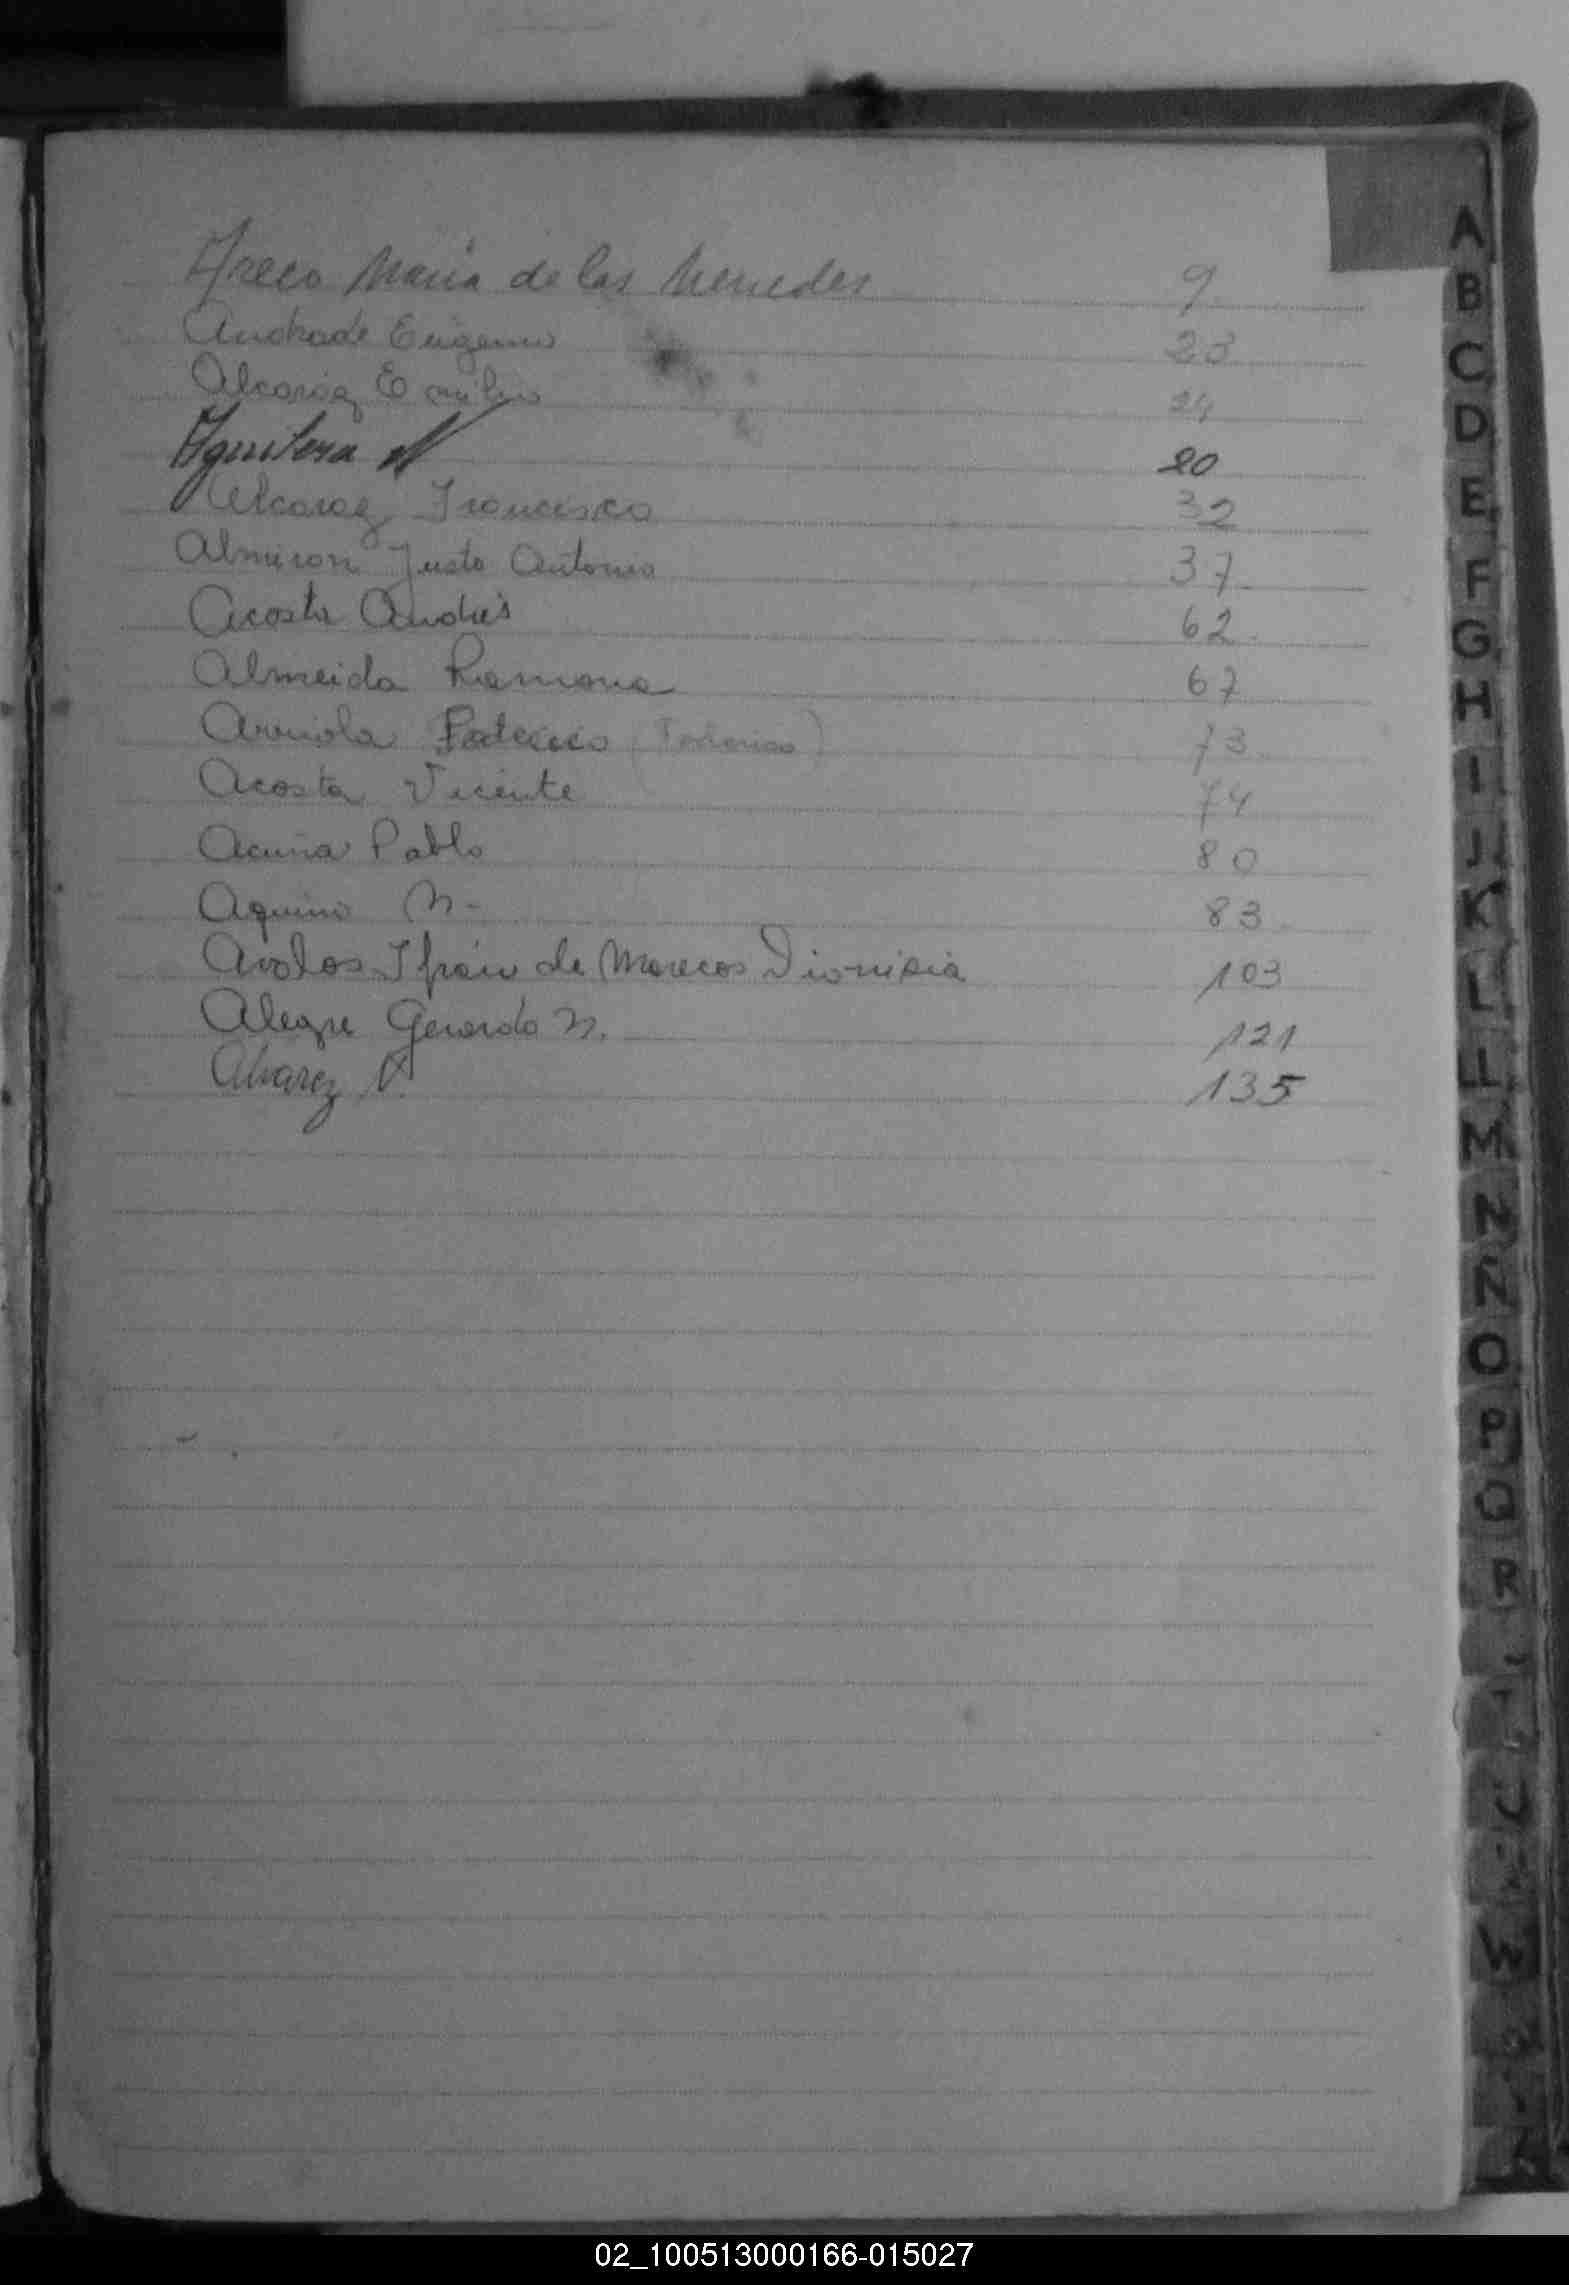 Areco Maria de las Mercedes 9
Andrade Eugenio 23
Alcaráz Emilio 24
Aguilera N 20
Alcaraz Francisco 32
Almiron Justo Antonio 37
Acosta Andrés 62
Almeida Ramona 67
Arriola (Federico) 73
Acosta Vicente 74
Acuña Pablo 80
Aquino N- 83
Avalos Ifrán de Marecos Dionisia 103
Alegre Gerardo N. 121
Alvarez V. 135
A
B
C
D
E
F
G
H
I
J
K
L
LL
M
N
Ñ
O
P
Q
R
T
U
W
02_100513000166-015027